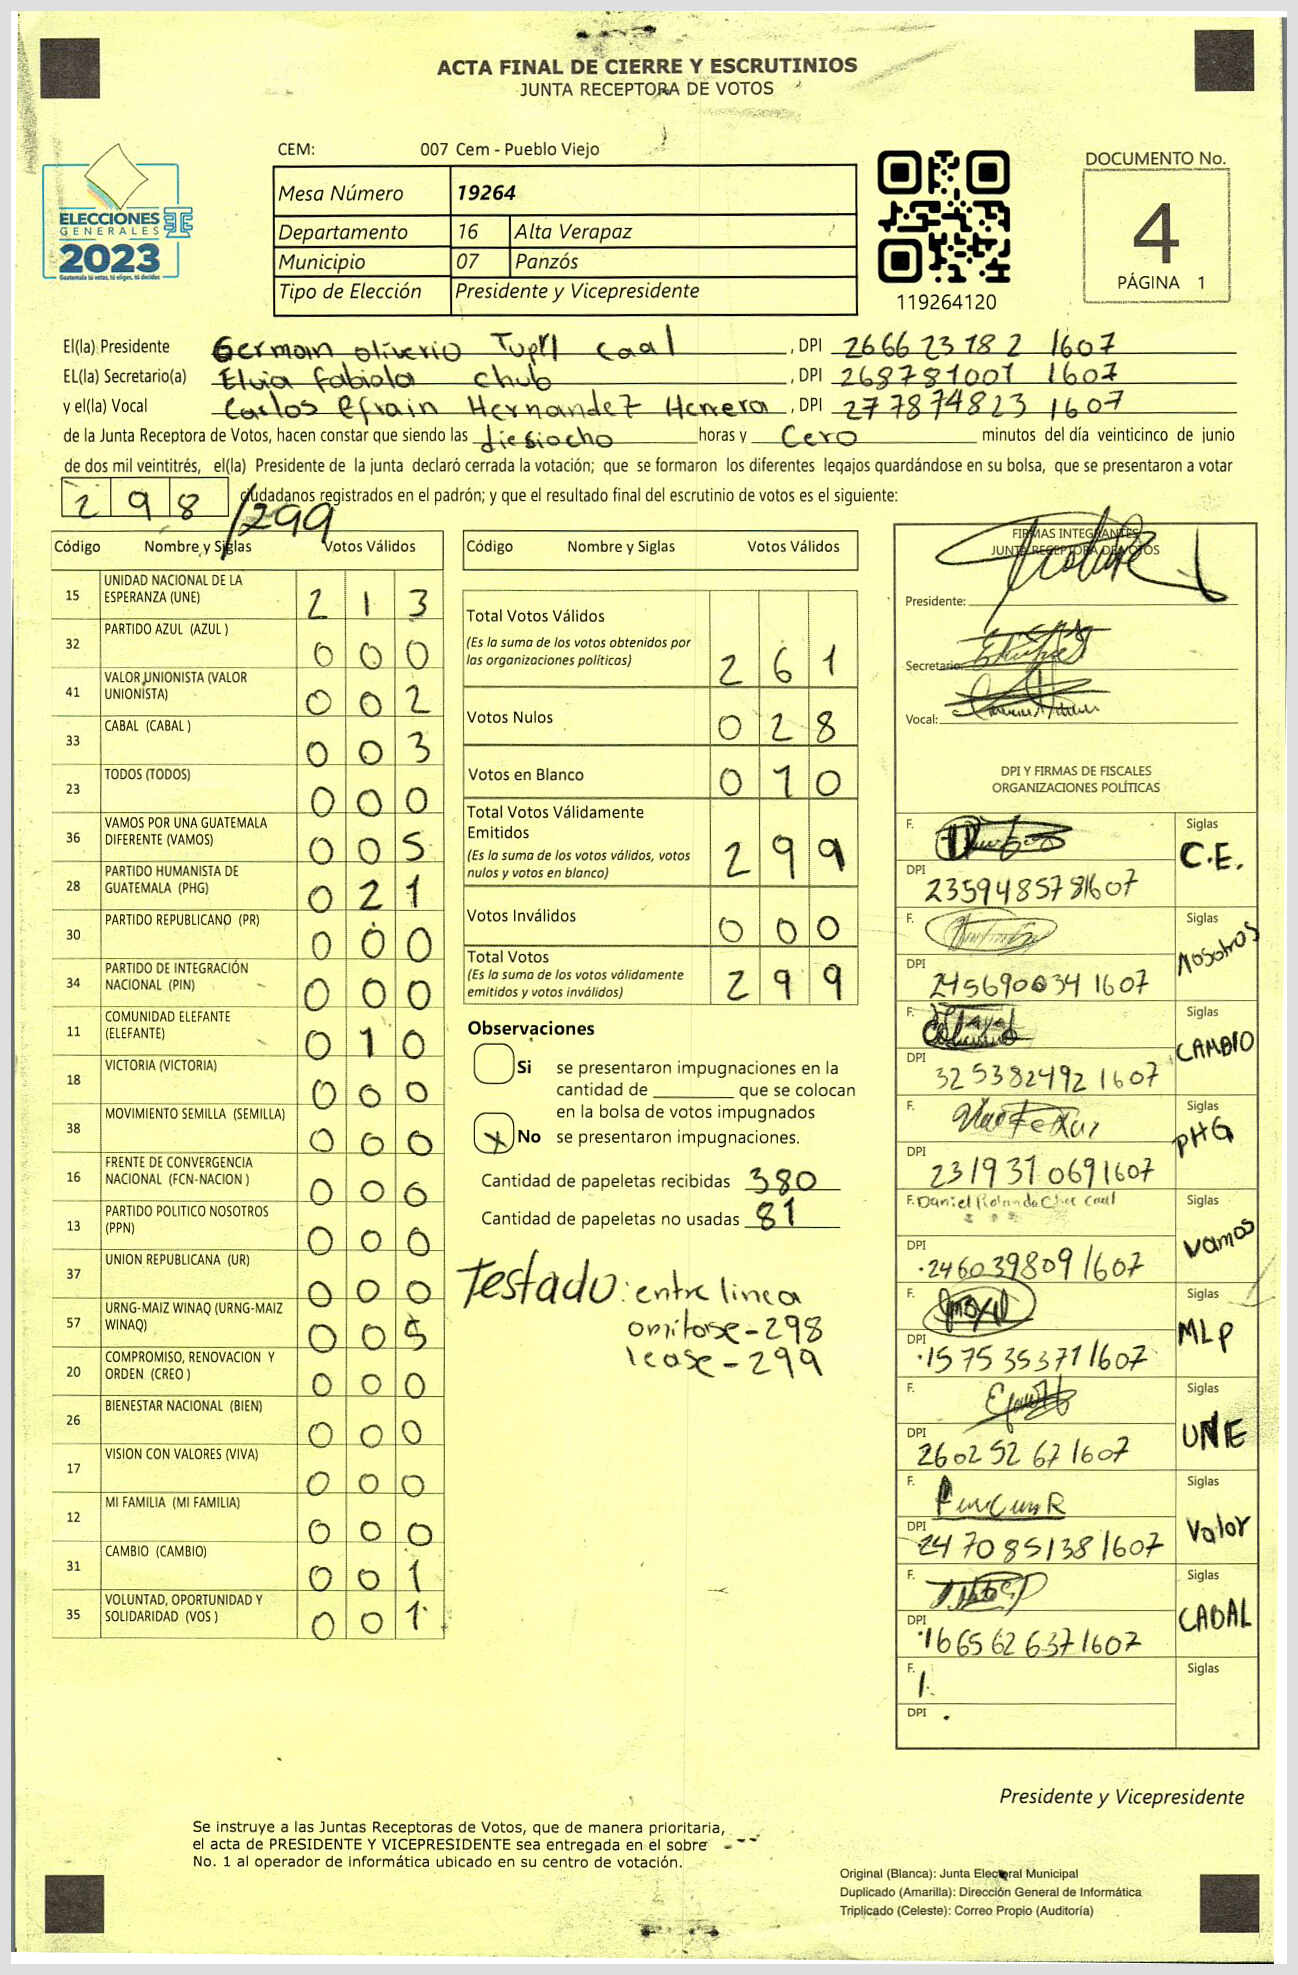 ACTA FINAL DE CIERRE Y ESCRUTINIOS
JUNTA RECEPTORA DE VOTOS
CEM: 007 Cem - Pueblo Viejo
Mesa Número 19264
Departamento 16 Alta Verapaz
Municipio 07 Panzós
Tipo de Elección Presidente y Vicepresidente
ELECCIONES
GENERALES
2023
Guatemala tú votas, tú eliges, tú decides
119264120
DOCUMENTO No.
4
PÁGINA 1
El(la) Presidente German oliverio Caal , DPI 266623182 1607
EL(la) Secretario(a) Elvia fabiola chub , DPI 268781001 1607
y el(la) Vocal Carlos Efrain Hernandez Herrera , DPI 277874823 1607
de la Junta Receptora de Votos, hacen constar que siendo las diesiocho horas y Cero minutos del día veinticinco de junio
de dos mil veintitrés, el(la) Presidente de la junta declaró cerrada la votación; que se formaron los diferentes legajos quardándose en su bolsa, que se presentaron a votar
298 /299 ciudadanos registrados en el padrón; y que el resultado final del escrutinio de votos es el siguiente:
Código Nombre y Siglas Votos Válidos
15 UNIDAD NACIONAL DE LA ESPERANZA (UNE) 213
32 PARTIDO AZUL (AZUL ) 000
41 VALOR UNIONISTA (VALOR UNIONISTA) 002
33 CABAL (CABAL ) 003
23 TODOS (TODOS) 000
36 VAMOS POR UNA GUATEMALA DIFERENTE (VAMOS) 005
28 PARTIDO HUMANISTA DE GUATEMALA (PHG) 021
30 PARTIDO REPUBLICANO (PR) 000
34 PARTIDO DE INTEGRACIÓN NACIONAL (PIN) 000
11 COMUNIDAD ELEFANTE (ELEFANTE) 010
18 VICTORIA (VICTORIA) 000
38 MOVIMIENTO SEMILLA (SEMILLA) 000
16 FRENTE DE CONVERGENCIA NACIONAL (FCN-NACION ) 000
13 PARTIDO POLITICO NOSOTROS (PPN) 000
37 UNION REPUBLICANA (UR) 000
57 URNG-MAIZ WINAQ (URNG-MAIZ WINAQ) 005
20 COMPROMISO, RENOVACION Y ORDEN (CREO ) 000
26 BIENESTAR NACIONAL (BIEN) 000
17 VISION CON VALORES (VIVA) 000
12 MI FAMILIA (MI FAMILIA) 000
31 CAMBIO (CAMBIO) 001
35 VOLUNTAD, OPORTUNIDAD Y SOLIDARIDAD (VOS ) 001
Código Nombre y Siglas Votos Válidos
Total Votos Válidos
(Es la suma de los votos obtenidos por
las organizaciones politicas) 261
Votos Nulos 028
Votos en Blanco 010
Total Votos Válidamente
Emitidos
(Es la suma de los votos válidos, votos
nulos y votos en blanco) 299
Votos Inválidos 000
Total Votos
(Es la suma de los votos válidamente
emitidos y votos inválidos) 299
Observaciones
Si se presentaron impugnaciones en la
cantidad de ________ que se colocan
en la bolsa de votos impugnados
X No se presentaron impugnaciones.
Cantidad de papeletas recibidas 380
Cantidad de papeletas no usadas 81
Testado: entre linea
omitase - 298
lease - 299
FIRMAS INTEGRANTES
JUNTA RECEPTORA DE VOTOS
Presidente:
Secretario:
Vocal:
DPI Y FIRMAS DE FISCALES
ORGANIZACIONES POLÍTICAS
F. Siglas C.E.
DPI 2359485781607
F. Siglas Nosotros
DPI 245690034 1607
F. Siglas CAMBIO
DPI 325382492 1607
F. Siglas PHG
DPI 231931069 1607
F. Daniel Rolando Choc Caal Siglas Vamos
DPI 246039809 1607
F. Siglas MLP
DPI 157535371 1607
F. Siglas UNE
DPI 260252 67 1607
F. Siglas Valor
DPI 247085138 1607
F. Siglas CABAL
DPI 166562637 1607
F. Siglas
DPI
Presidente y Vicepresidente
Se instruye a las Juntas Receptoras de Votos, que de manera prioritaria,
el acta de PRESIDENTE Y VICEPRESIDENTE sea entregada en el sobre
No. 1 al operador de informática ubicado en su centro de votación.
Original (Blanca): Junta Electoral Municipal
Duplicado (Amarilla): Dirección General de Informática
Triplicado (Celeste): Correo Propio (Auditoría)